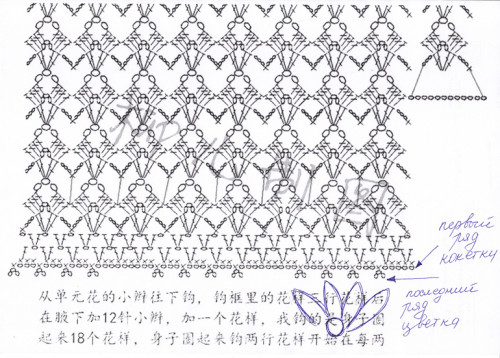 первый
ряд
кокетки
последний
ряд
цветка
从单元花的小辫往下钩，钩框里的花样三行花样后
在腋下加12针小辫，加一个花样，我钩的 身子圈
起来18个花样，身子圈起来钩两行花样开始在每两